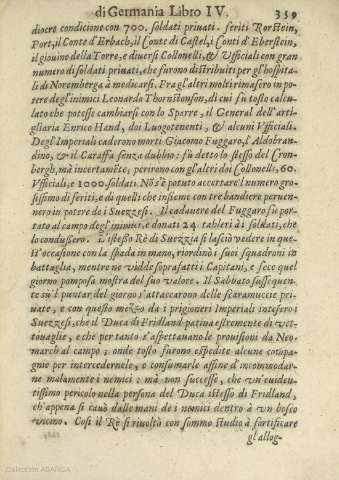 di Germania Libro IV. 359
diocre condizione con 700. soldati priuati. feriti Rorstein,
Port, il Conte d'Erbach, il Conte di Castel, i Conti d'Eberstein,
il giouine della Torre, e diuersi Collonelli, & Vfficiali con gran
numero di soldati priuati, che furono distribuiti per gl'hospita-
li di Noremberga à medicarsi. Frà gl'altri molti rimasero in po-
tere degl'inimici Leonardo Thornstonson, di cui fù tosto calcu-
lato che potesse cambiarsi con lo Sparre, il General dell'arti-
gliaria Enrico Hand, doi Luogotenenti, & alcuni Vfficiali.
Degl'Imperiali caderono morti Giacomo Fuggaro, l'Aldobran-
dino, & il Caraffa senza dubbio: fù detto lo stesso del Cron-
bergh, mà incertamẽte; perirono con gl'altri doi Collonelli, 60.
Vfficiali, e 1000. soldati. Nõ s'è potuto accertare'l numero gros-
sissimo di feriti, e di quelli che insieme con tre bandiere peruen-
nero in potere de i Suezzesi. Il cadauere del Fuggaro fù por-
tato al campo degl'inimici, e donati 24 tahleri ài soldati, che
lo condussero. L'istesso Rè di Suezzia si lasciò vedere in que-
st'occasione con la spada in mano, riordinò i suoi squadroni in
battaglia, mentre ne vidde soprafatti i Capitani, e fece quel
giorno pomposa mostra del suo valore. Il Sabbato sussequen-
te sù'l puntar del giorno s'attaccarono delle scaramuccie pri-
uate, e con questo mezzo da i prigioneri Imperiali intesero i
Suezzesi, che il Duca di Fridland patiua estremente di vet-
touaglie, e che per tanto s'aspettauano le prouisioni da Neo-
march al campo; onde tosto furono espedite alcune cõpag-
nie per intercedernele, e consumarle affine d'incommodar-
ne malamente i nemici: mà non successe, che vn'euiden-
tissimo pericolo nella persona del Duca istesso di Fridland,
ch'appena si cauò dalle mani de i nemici dentro à vn bosco
vicino. Così il Rè si riuoltò con sommo studio à fortificare
gl'allog-
Colección ABANCA